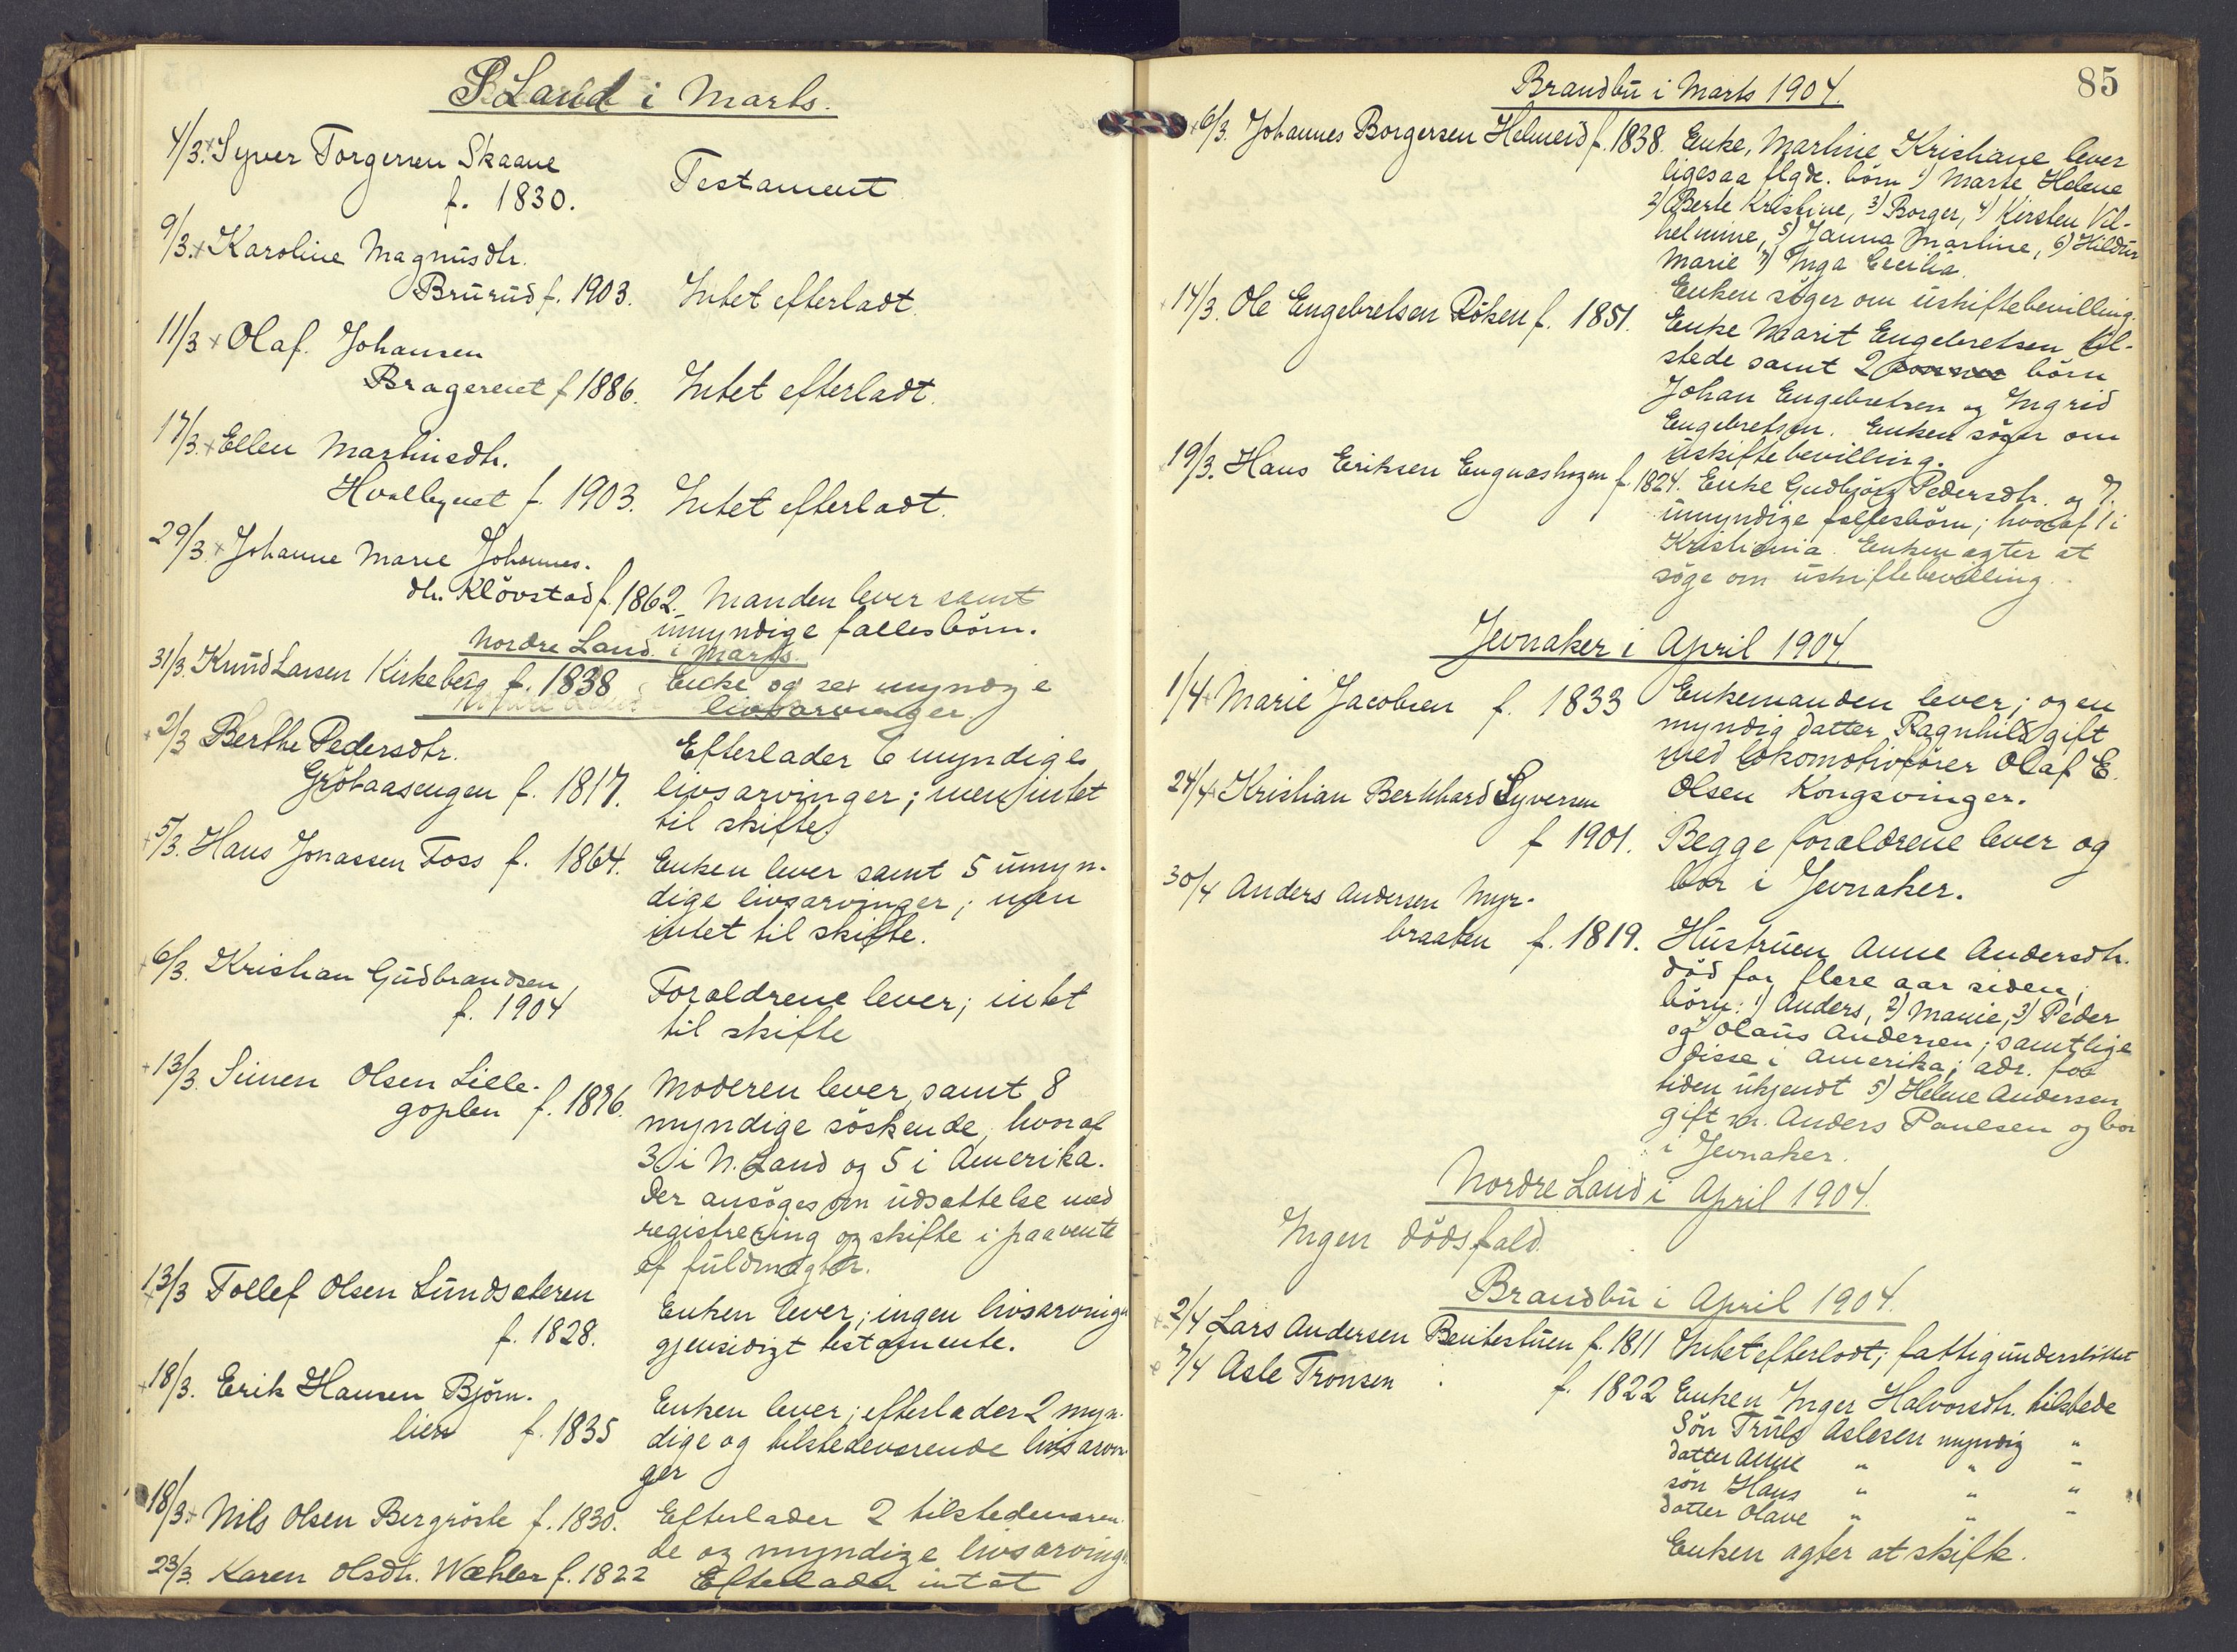 S. Land i Marts.
4/3. Syver Torgersen Skaane
f. 1830. Testament
9/3. Karoline Magnusdtr.
Brurud f. 1903. Intet efterladt.
11/3 Olaf Johansen
Bragereiet f 1886. Intet efterladt.
17/3. Ellen Martinsdtr.
f. 1903. Intet efterladt.
29/3. Johanne Marie Johannes-
dtr. Klövstad f. 1862. Manden lever samt
umyndige fællesbörn.
Nordre Land i Marts.
31/3. Knud Larsen Kirkeberg f. 1838 Enke og sex myndige
livsarvinger
2/3 Berthe Pedersdtr. Efterlader 6 myndige
Grötaasengen f. 1817. livsarvinger; men intet
til skifte
5/3. Hans Jonassen Foss f. 1864. Enken lever samt 5 umyn-
dige livsarvinger; men
intet til skifte.
6/3. Kristian Gudbrandsen
f. 1904 Forældrene lever; intet
til skifte
13/3. Simen Olsen Lille-
goplen f. 1876. Moderen lever, samt 8
myndige söskende, hvoraf
3 i N. Land og 5 i Amerika.
Der ansöges om udsættelse med
registrering og skifte i paavente
af fuldmagter.
13/3 Tollef Olsen Lundsæteren
f. 1828. Enken lever; ingen livsarving
gjensidigt testamente.
18/3. Erik Hansen Björn-
lien f. 1835 Enken lever; efterlader 2 myn-
dige og tilstedeværende livsarvin-
ger
18/3. Nils Olsen Bergröste f. 1830. Efterlader 2 tilstedeværen-
de og myndige livsarving
23/3. Karen Olsdtr. Wæhler f. 1822 Efterlader intet
85
Brandbu i Marts 1904.
6/3. Johannes Borgersen Helmeid f. 1838. Enke, Martine Kristiane lever
ligesaa flgde. börn 1) Marte Helene
2) Berte Kristine, 3) Borger, 4) Kirsten Vil-
helmine, 5) Janna Martine, 6) Hildur
Marie 7) Inga Cecilia.
Enken söger om uskiftebevilling.
14/3. Ole Engebretsen Röken f. 1851. Enke Marit Engebretsen til-
stede samt 2 börn
Johan Engebretsen og Ingrid
Engebretsen. Enken söger om
uskiftebevilling.
19/3. Hans Eriksen Engnæshagen f. 1824. Enke Gudbjörg Pedersdtr. og 7
umyndige fællesbörn; hvoraf 1 i
Kristiania. Enken agter at
söge om uskiftebevilling.
Jevnaker i April 1904.
1/4 Marie Jacobsen f. 1833 Enkemanden lever; og en
myndig datter Ragnhild gift
med lokomotivförer Olaf E.
Olsen Kongsvinger.
24/4 Kristian Bernhard Syversen
f 1901. Begge forældrene lever og
bor i Jevnaker.
30/4 Anders Andersen Myr-
braaten f. 1819. Hustruen Anne Andersdtr.
död for flere aar siden;
börn: 1) Anders, 2) Marie, 3) Peder
og 4) Olaus Andersen; samtlige
disse i Amerika; adr. for
tiden ukjendt 5) Helene Andersen
gift m. Anders Paulsen og bor
i Jevnaker.
Nordre Land i April 1904.
Ingen dödsfald.
Brandbu i April 1904.
2/4 Lars Andersen Benitestuen f. 1811 Intet efterladt; fattigunderstöttet
7/4 Asle Tronsen f. 1822 Enken Inger Halvorsdtr. tilstede
Sön Truls Aslesen myndig "
datter Anne " " "
sön Hans " " "
datter Olave " " "
Enken agter at skifte.